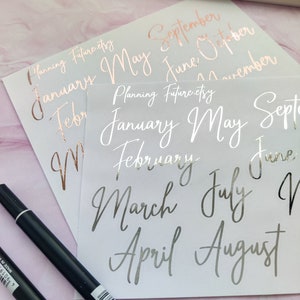 Planning Future.etsy
January May September
February June October
November
Planning Future.etsy
January May Septe
February June
March July
April August